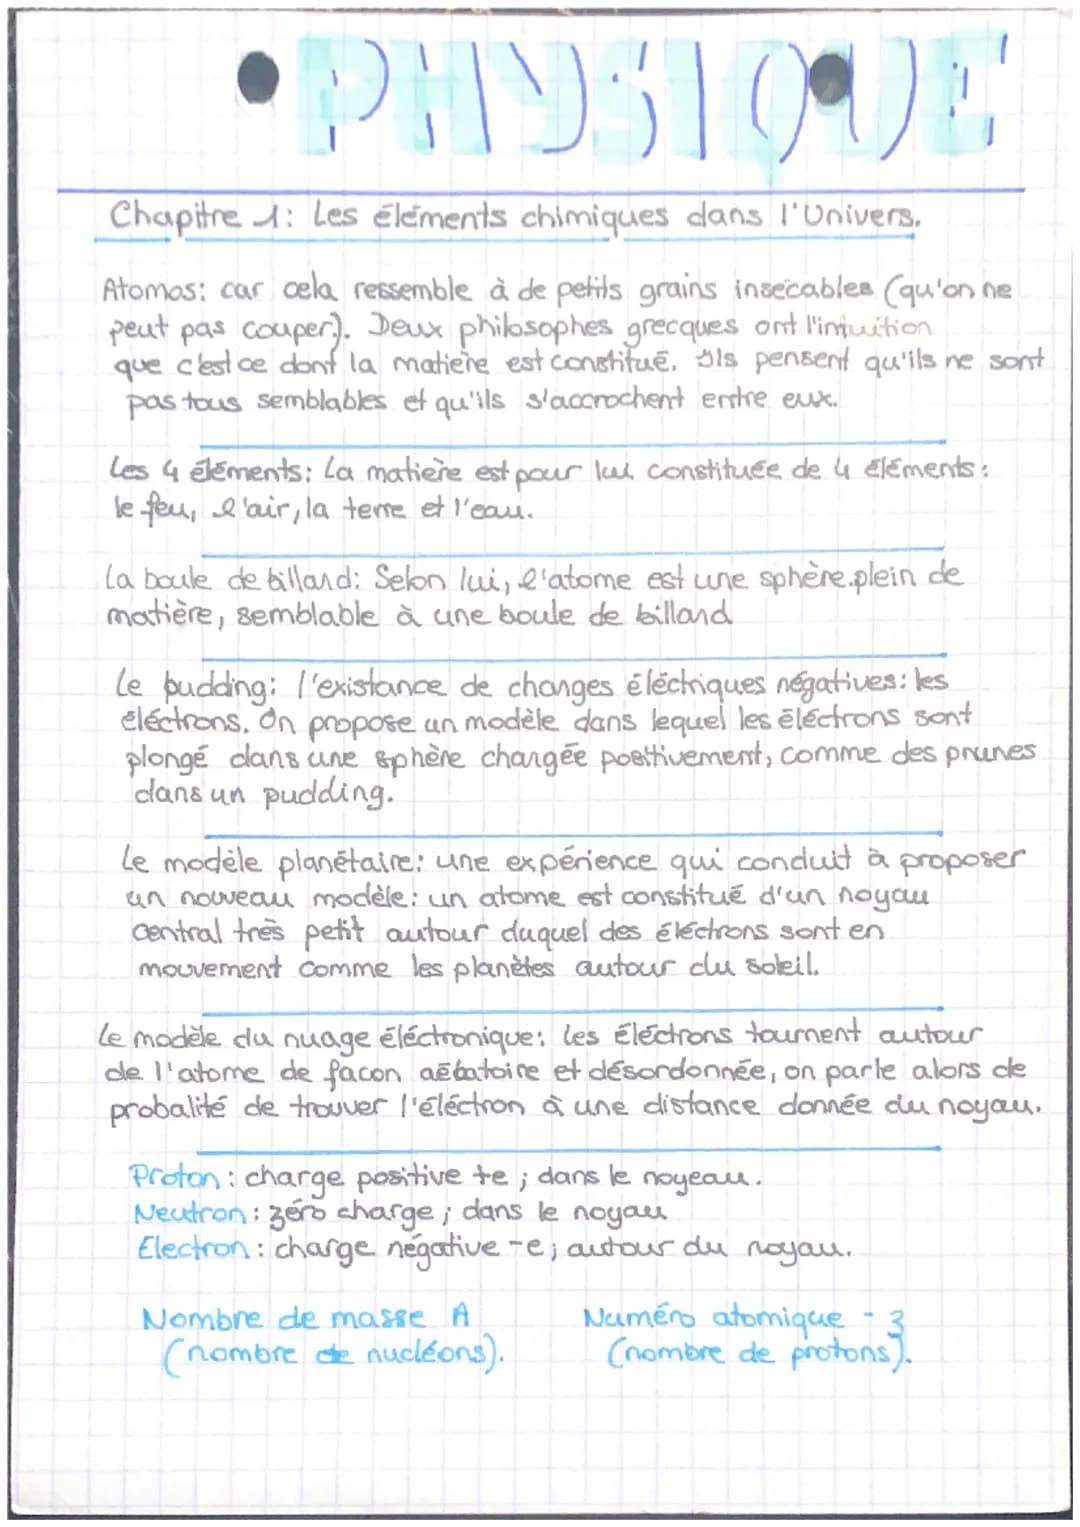 • PHYSIQUE
Chapitre 1: Les éléments chimiques dans l'Univers.
Atomos: car cela ressemble à de petits grains insécables (qu'on ne
peut pas couper). Deux philosophes grecques ont l'intuition
que c'est ce dont la matière est constitué. Ils pensent qu'ils ne sont
pas tous semblables et qu'ils s'accrochent entre eux.
Les 4 éléments: La matière est pour lui constituée de 4 éléments:
le feu, l'air, la terre et l'eau.
La boule de billard: Selon lui, l'atome est une sphère plein de
matière, semblable à une boule de billard
Le pudding: l'existance de charges éléctriques négatives: les
éléctrons. On propose un modèle dans lequel les éléctrons sont
plongé dans une sphère chargée positivement, comme des prunes
dans un pudding.
Le modèle planétaire: une expérience qui conduit à proposer
un nouveau modèle: un atome est constitué d'un noyau
central très petit autour duquel des éléctrons sont en
mouvement comme les planètes autour du soleil.
Le modèle du nuage éléctronique: Les éléctrons tournent autour
de l'atome de facon et désordonnée, on parle alors de
probalité de trouver l'éléctron à une distance donnée du noyau.
Proton: charge positive +e; dans le noyeau.
Neutron: zéro charge; dans le noyau
Electron: charge négative -e; autour du noyau.
Nombre de masse A
(nombre de nucléons).
Numéro atomique - 3
(nombre de protons).